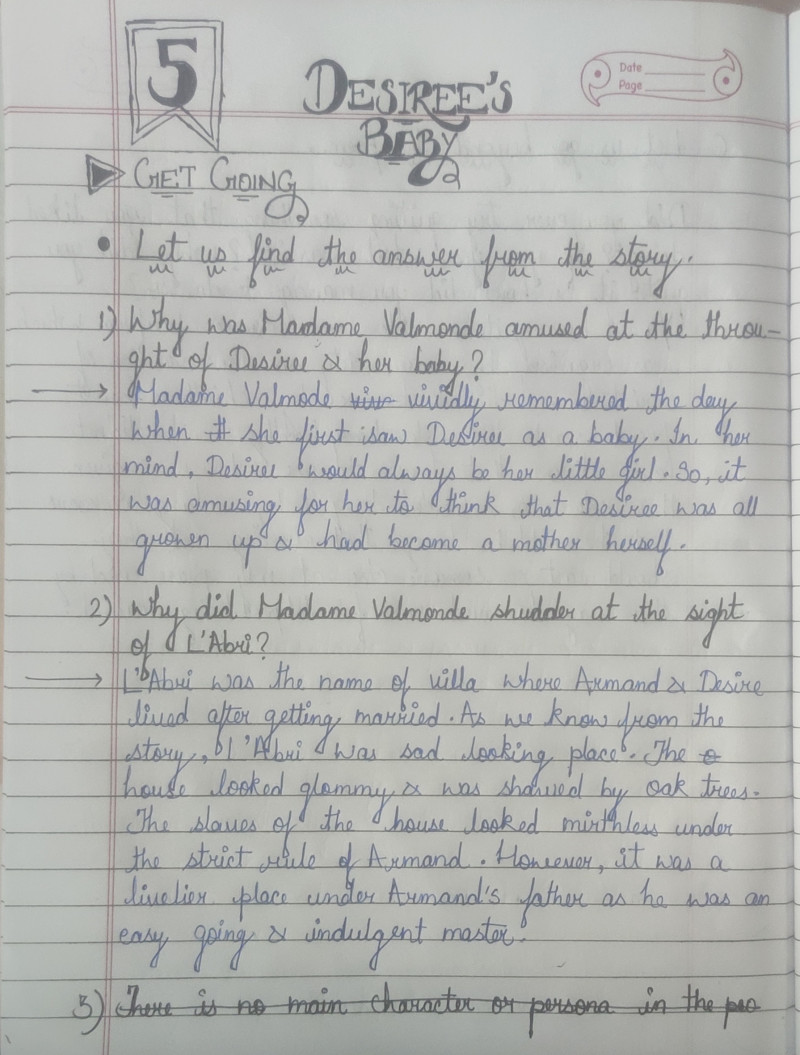 5
DESIREE'S
BABY
Date
Page
GET GOING
• Let us find the answer from the story.
1) Why was Madame Valmonde amused at the throu-
ght of Desiree & her baby?
→ Madame Valmode vividly remembered the day
when she first saw Desiree as a baby. In her
mind, Desiree would always be her little girl. So, it
was amusing for her to think that Desiree was all
grown up & had become a mother herself.
2) Why did Madame Valmonde shudder at the sight
of L'Abri?
→ L'Abri was the name of villa where Armand & Desire
lived after getting married. As we know from the
story, l'Abri was sad looking place. The
house looked glommy & was shawed by oak trees.
The slaves of the house looked mirthless under
the strict rule of Armand. However, it was a
livelier place under Armand's father as he was an
easy going & indulgent master.
3) There is no main character or persona in the peo